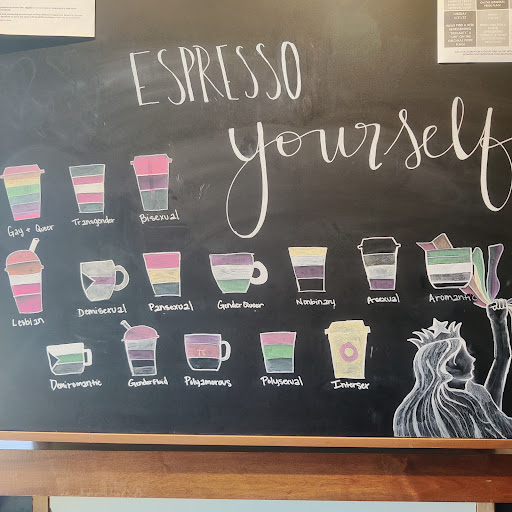 ESPRESSO
yourself
Gay + Queer Transgender Bisexual
Lesbian Demisexual Pansexual GenderQueer Nonbinary Asexual Aromantic
Demiromantic GenderFluid Polyamorous Polysexual Intersex